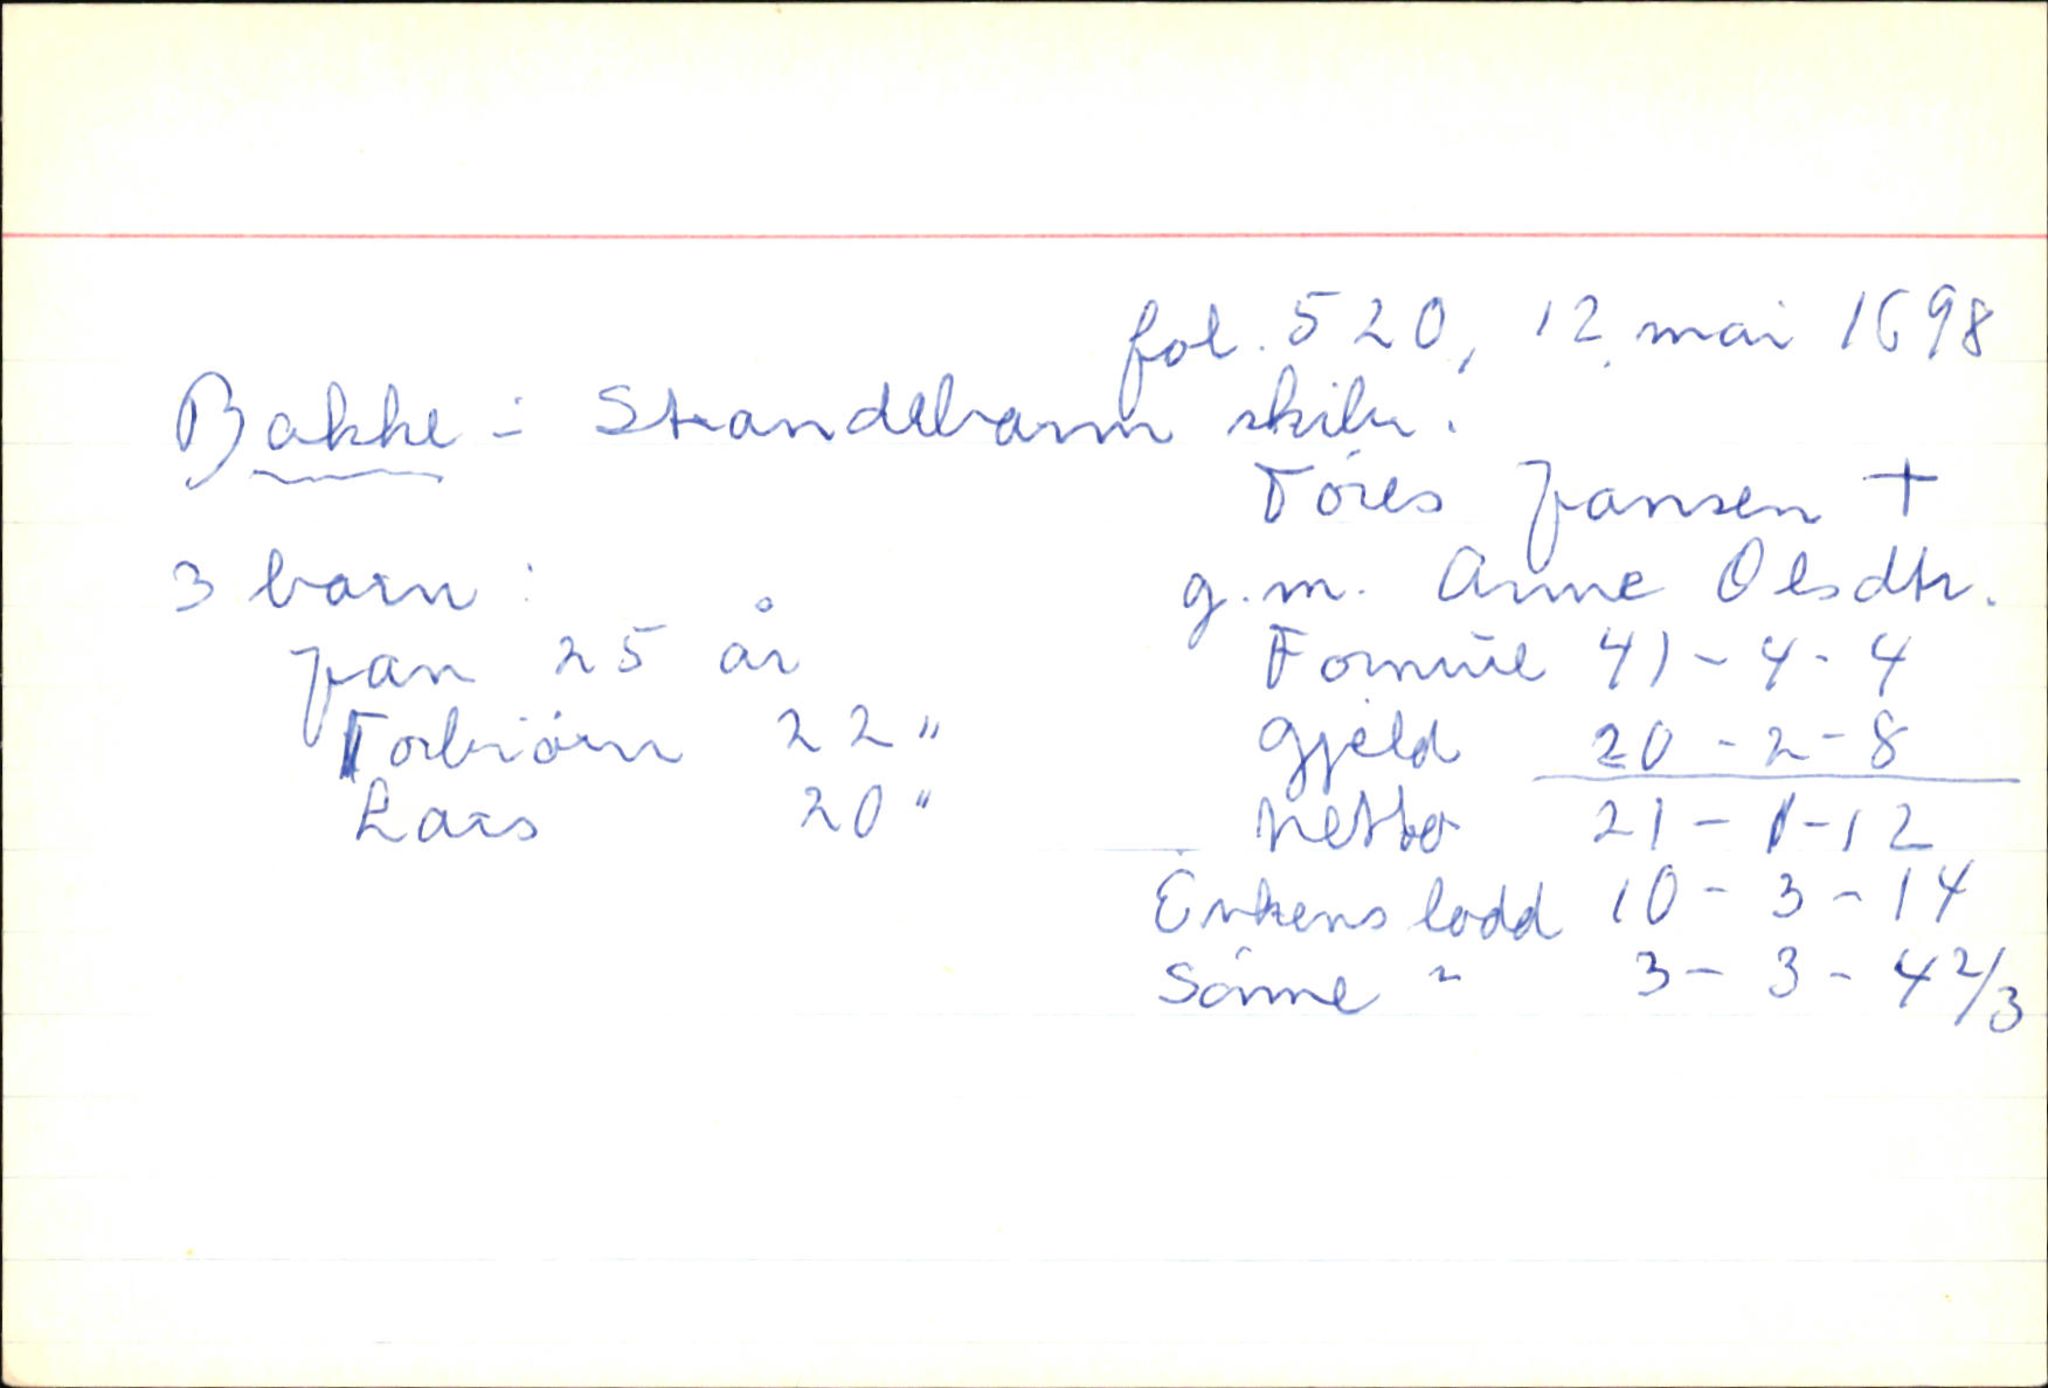 fol. 520, 12. mai 1698
Bakke i Strandebarm skibr.
Tóres Jansen +
3 barn: g.m. Anne Olsdtr.
Jan 25 år Formue 41-4-4
Torbiórn 22 " Gjeld 20-2-8
Lars 20 " Netto 21-1-12
Enkens lodd 10-3-14
Sónne " 3-3-4 2/3